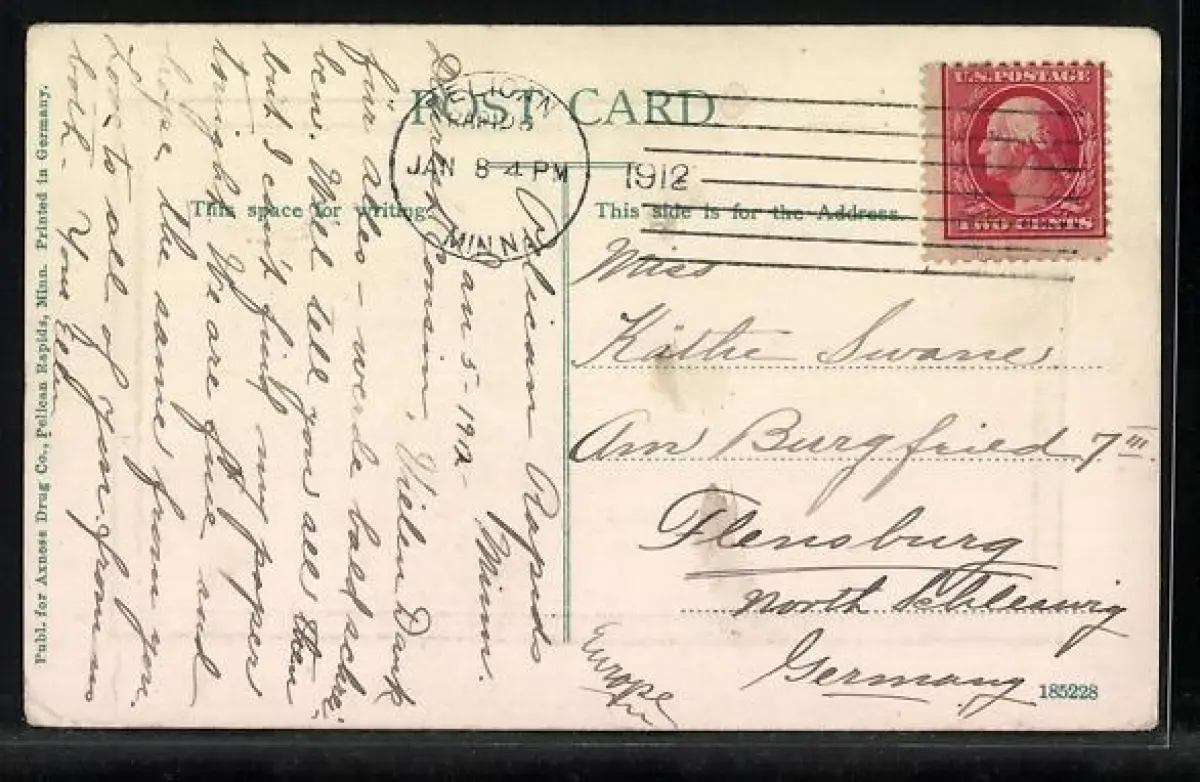 POST CARD
PELICAN
RAPIDS
JAN 8 4 PM
MINN.
1912
U.S. POSTAGE
TWO CENTS
This space for writing.
This side is for the Address.
Pelican Rapids
Minn.
Jan 5 - 1912 -
Dearest Cousin, Vielen Dank
für alles - werde bald schrei-
ben. Will tell you all then
but I can't find my paper
tonight. We are fine and
hope the same from you.
Love to all of you from us
both - Your
Miss
Käthe Swane
Am Burgfried 7 III
Flensburg
North Schleswig
Germany
Europe
185228
Publ. for Axness Drug Co., Pelican Rapids, Minn. Printed in Germany.